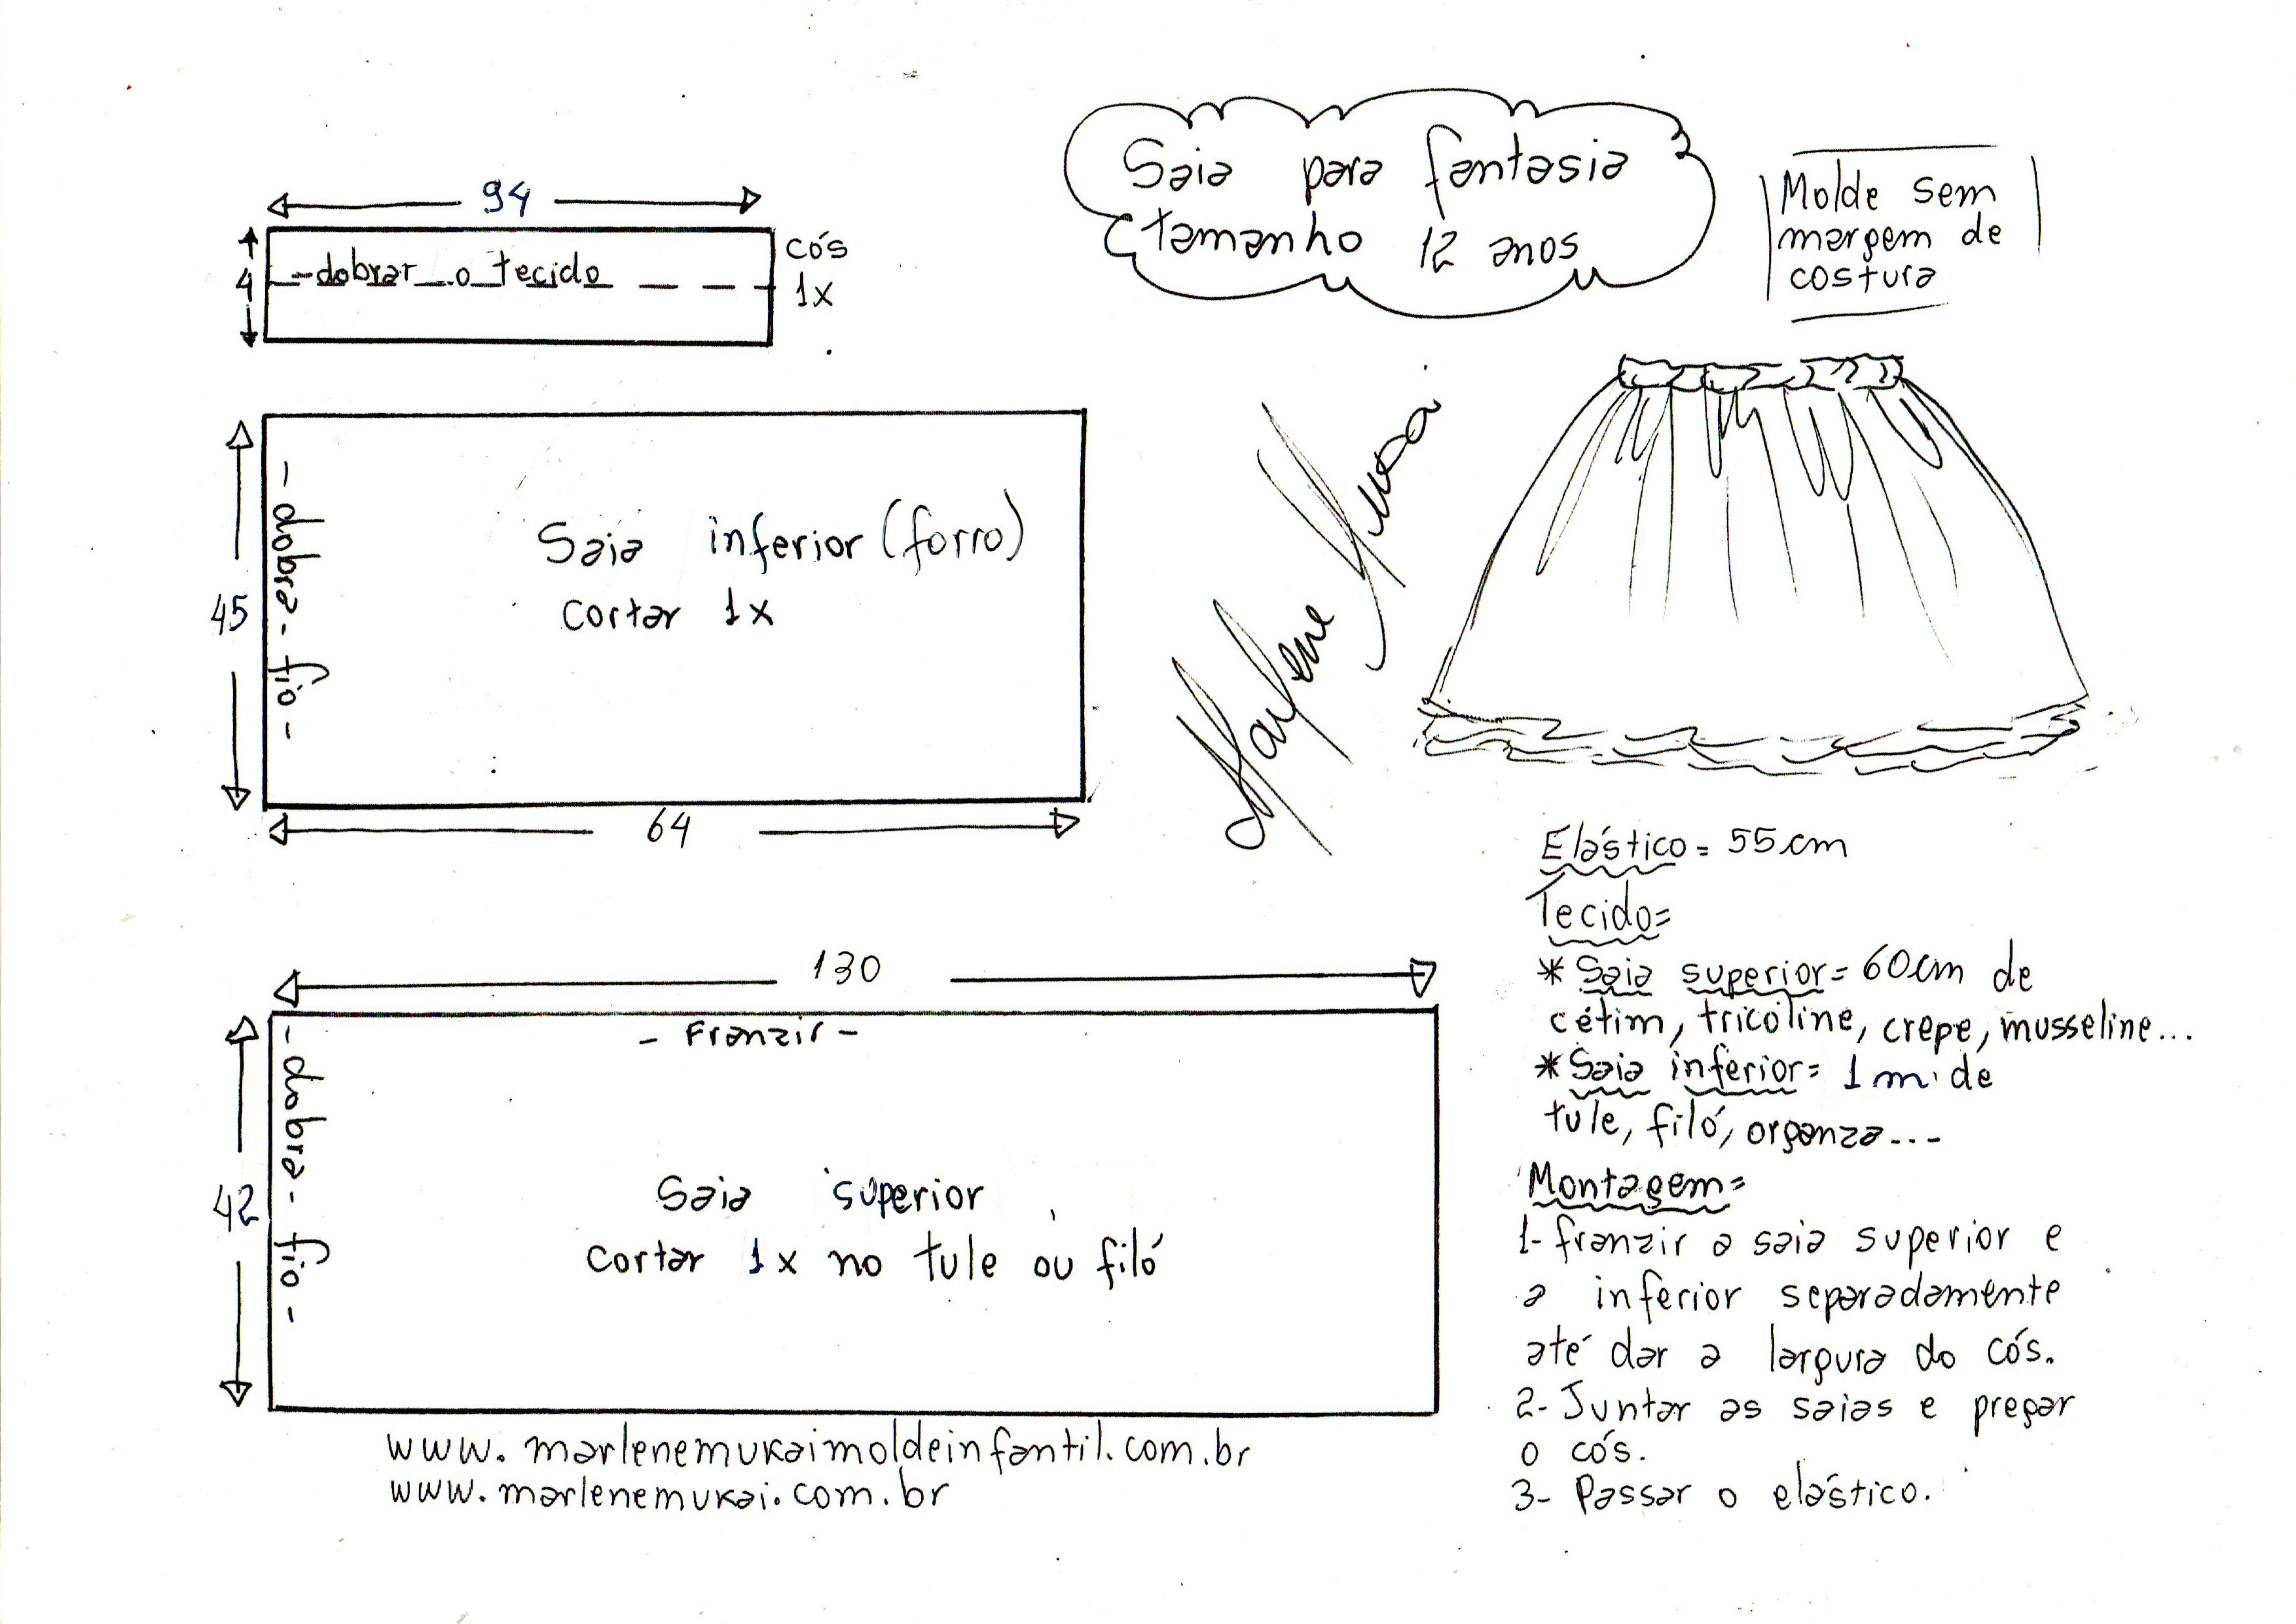 Saia para fantasia
tamanho 12 anos
Molde sem
margem de
costura
94
4
-dobrar o tecido
cós
1x
45
- dobra - fio -
Saia inferior (forro)
cortar 1x
64
Marlene Mukai
130
- Franzir -
42
- dobra - fio -
Saia superior
cortar 1x no tule ou filó
www.marlenemukaimoldeinfantil.com.br
www.marlenemukai.com.br
Elástico = 55cm
Tecido=
* Saia superior = 60cm de
cetim, tricoline, crepe, musseline...
* Saia inferior = 1m de
tule, filó, organza...
Montagem=
1- franzir a saia superior e
a inferior separadamente
até dar a largura do cós.
2- Juntar as saias e pregar
o cós.
3- Passar o elástico.